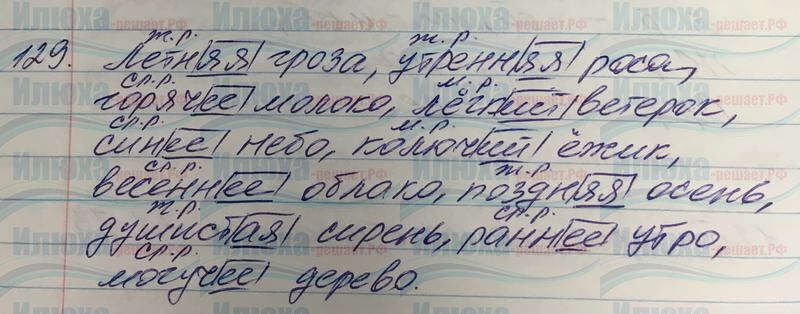 129. ж.р. Летняя гроза, ж.р. утренняя роса,
ср.р. горячее молоко, м.р. лёгкий ветерок,
ср.р. синее небо, м.р. колючий ёжик,
ср.р. весеннее облако, ж.р. поздняя осень,
ж.р. душистая сирень, ср.р. раннее утро,
ср.р. могучее дерево.